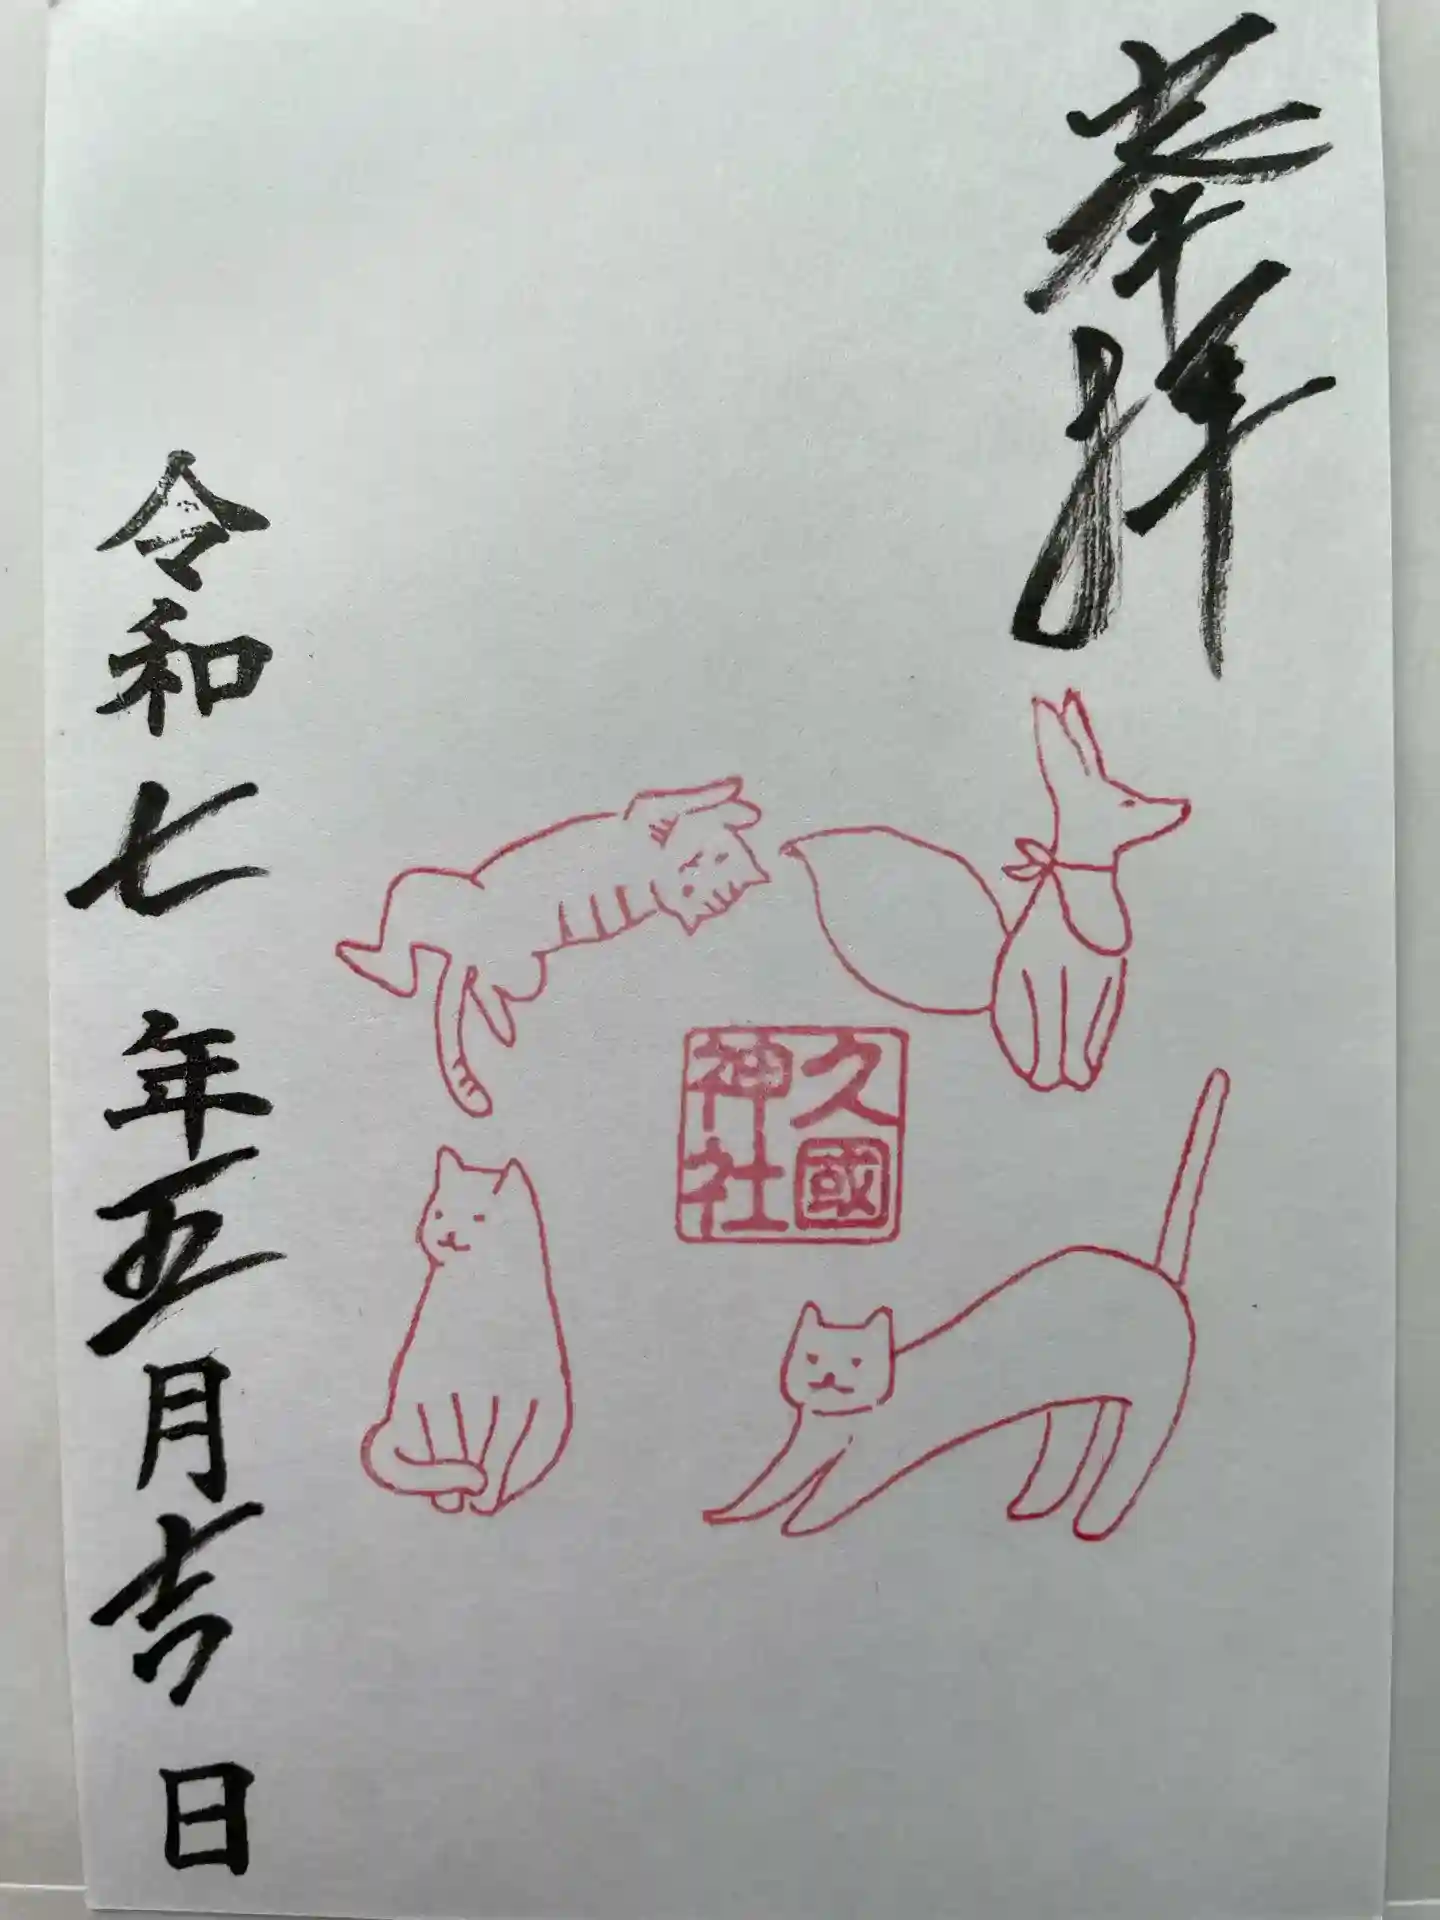 奉拝
久國
神社
令和七年五月吉日